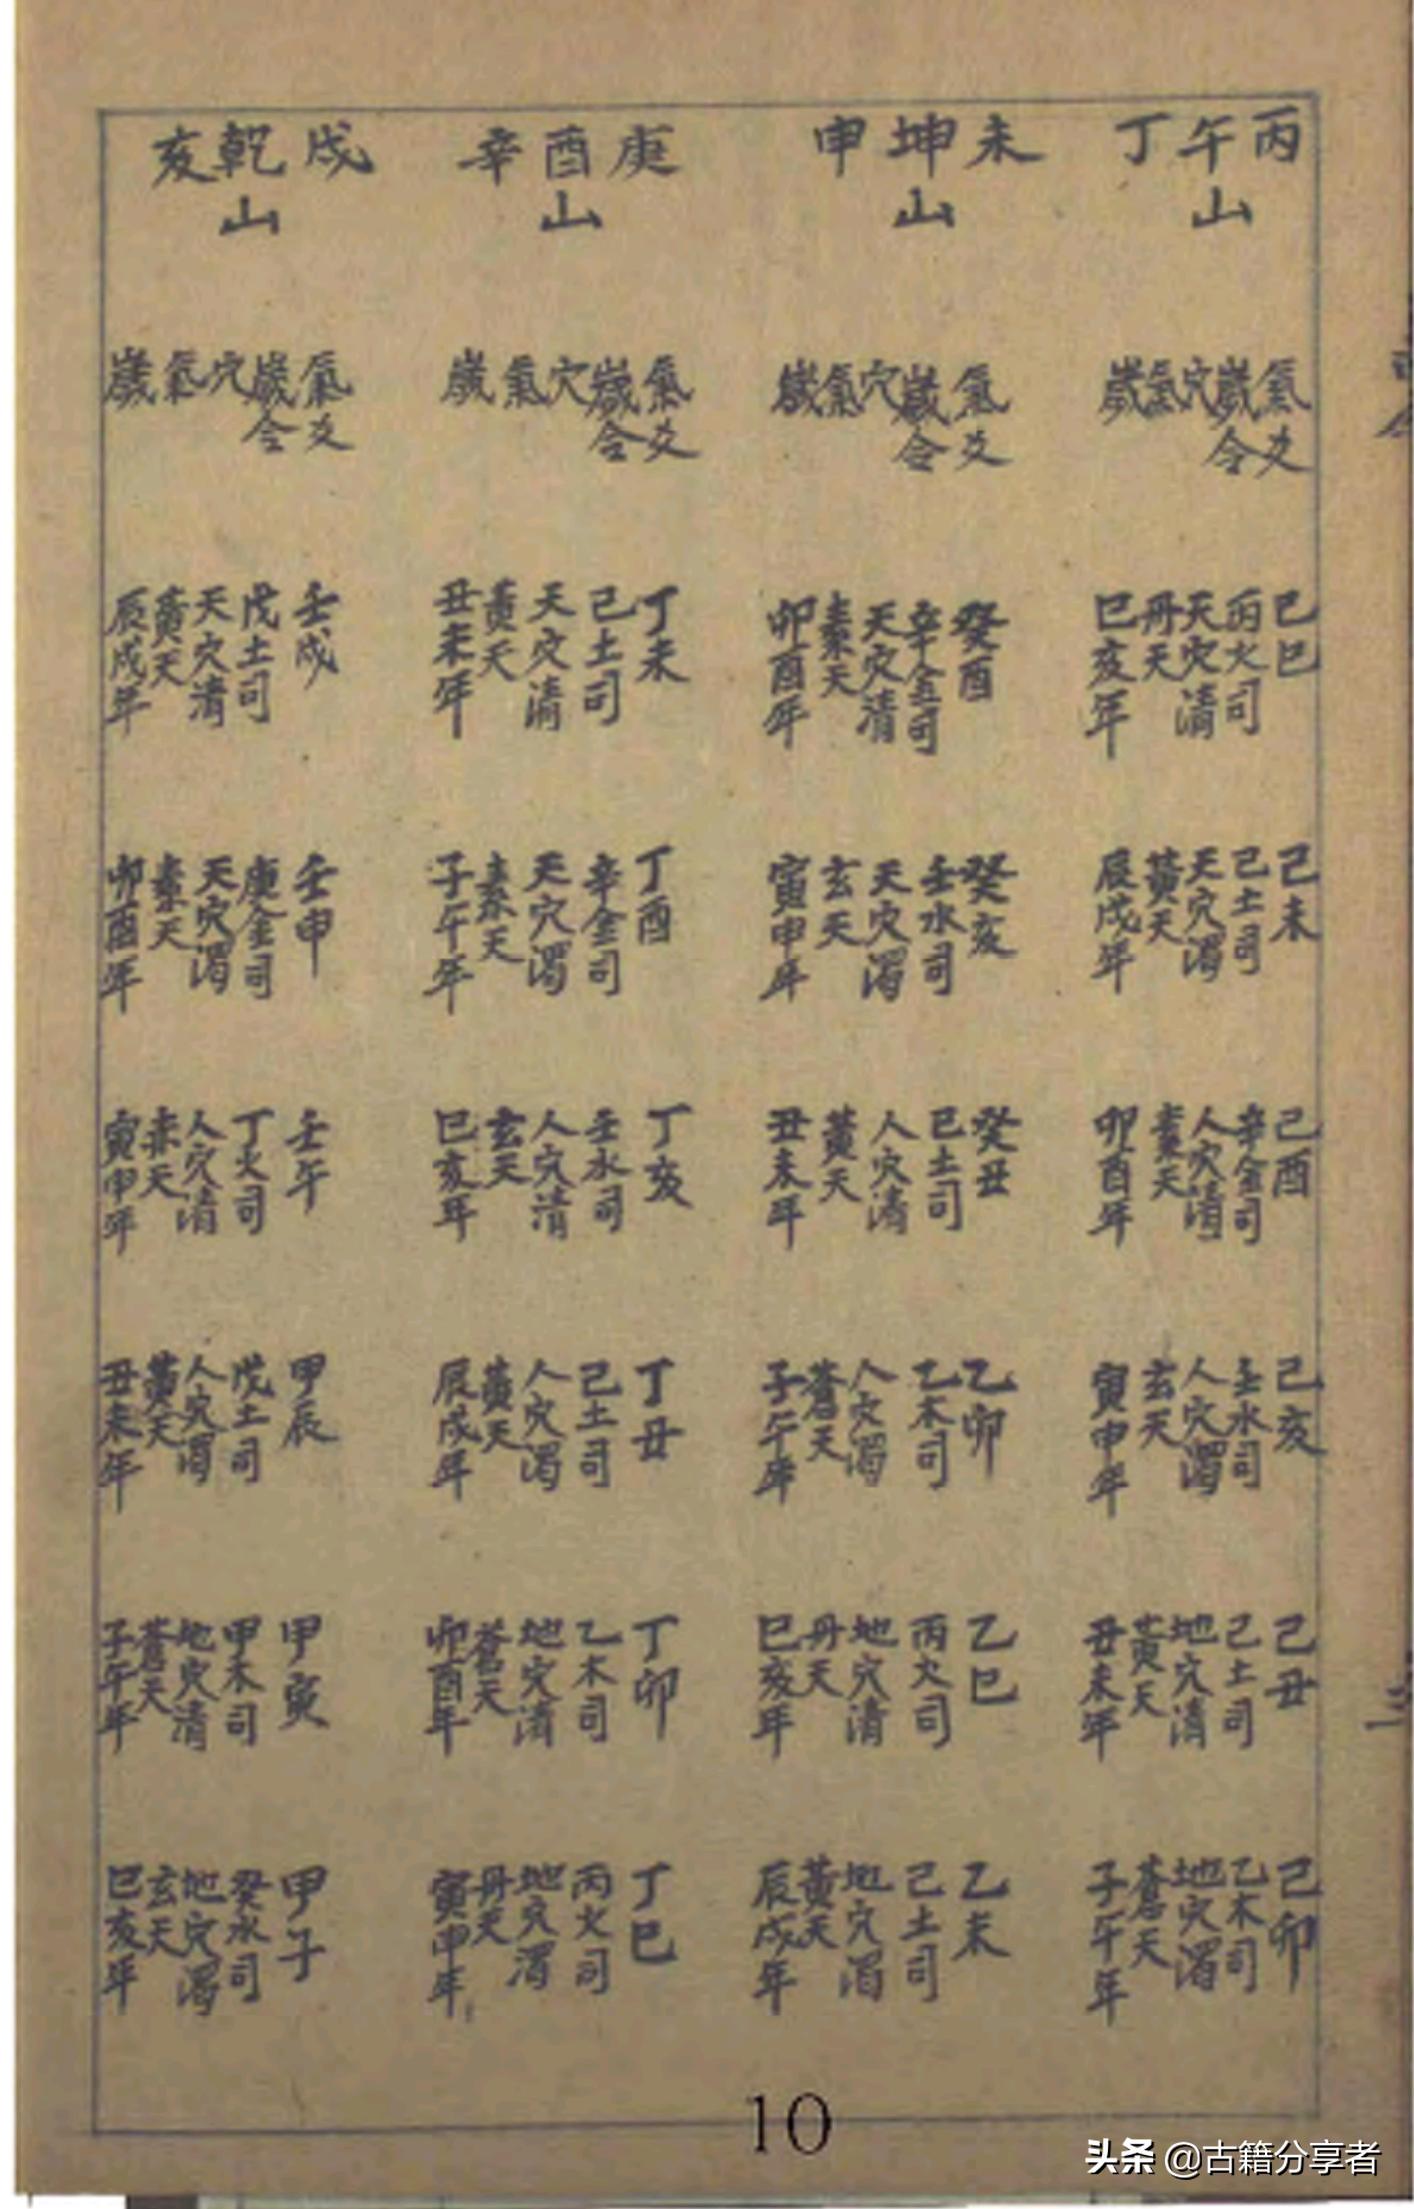 丙午丁
山
氣爻 己巳 己未 己酉 己亥 己丑 己卯
歲令 丙火司 己土司 辛金司 壬水司 己土司 乙木司
穴 天穴清 天穴濁 人穴清 人穴濁 地穴清 地穴濁
氣 丹天 黃天 素天 玄天 黃天 蒼天
歲 巳亥年 辰戌年 卯酉年 寅申年 丑未年 子午年
未坤申
山
氣爻 癸酉 癸亥 癸丑 乙卯 乙巳 乙未
歲令 辛金司 壬水司 己土司 乙木司 丙火司 己土司
穴 天穴清 天穴濁 人穴清 人穴濁 地穴清 地穴濁
氣 素天 玄天 黃天 蒼天 丹天 黃天
歲 卯酉年 寅申年 丑未年 子午年 巳亥年 辰戌年
庚酉辛
山
氣爻 丁未 丁酉 丁亥 丁丑 丁卯 丁巳
歲令 己土司 辛金司 壬水司 己土司 乙木司 丙火司
穴 天穴清 天穴濁 人穴清 人穴濁 地穴清 地穴濁
氣 黃天 素天 玄天 黃天 蒼天 丹天
歲 丑未年 子午年 巳亥年 辰戌年 卯酉年 寅申年
戌乾亥
山
氣爻 壬戌 壬申 壬午 甲辰 甲寅 甲子
歲令 戊土司 庚金司 丁火司 戊土司 甲木司 癸水司
穴 天穴清 天穴濁 人穴清 人穴濁 地穴清 地穴濁
氣 黃天 素天 赤天 黃天 蒼天 玄天
歲 辰戌年 卯酉年 寅申年 丑未年 子午年 巳亥年
10
头条 @古籍分享者